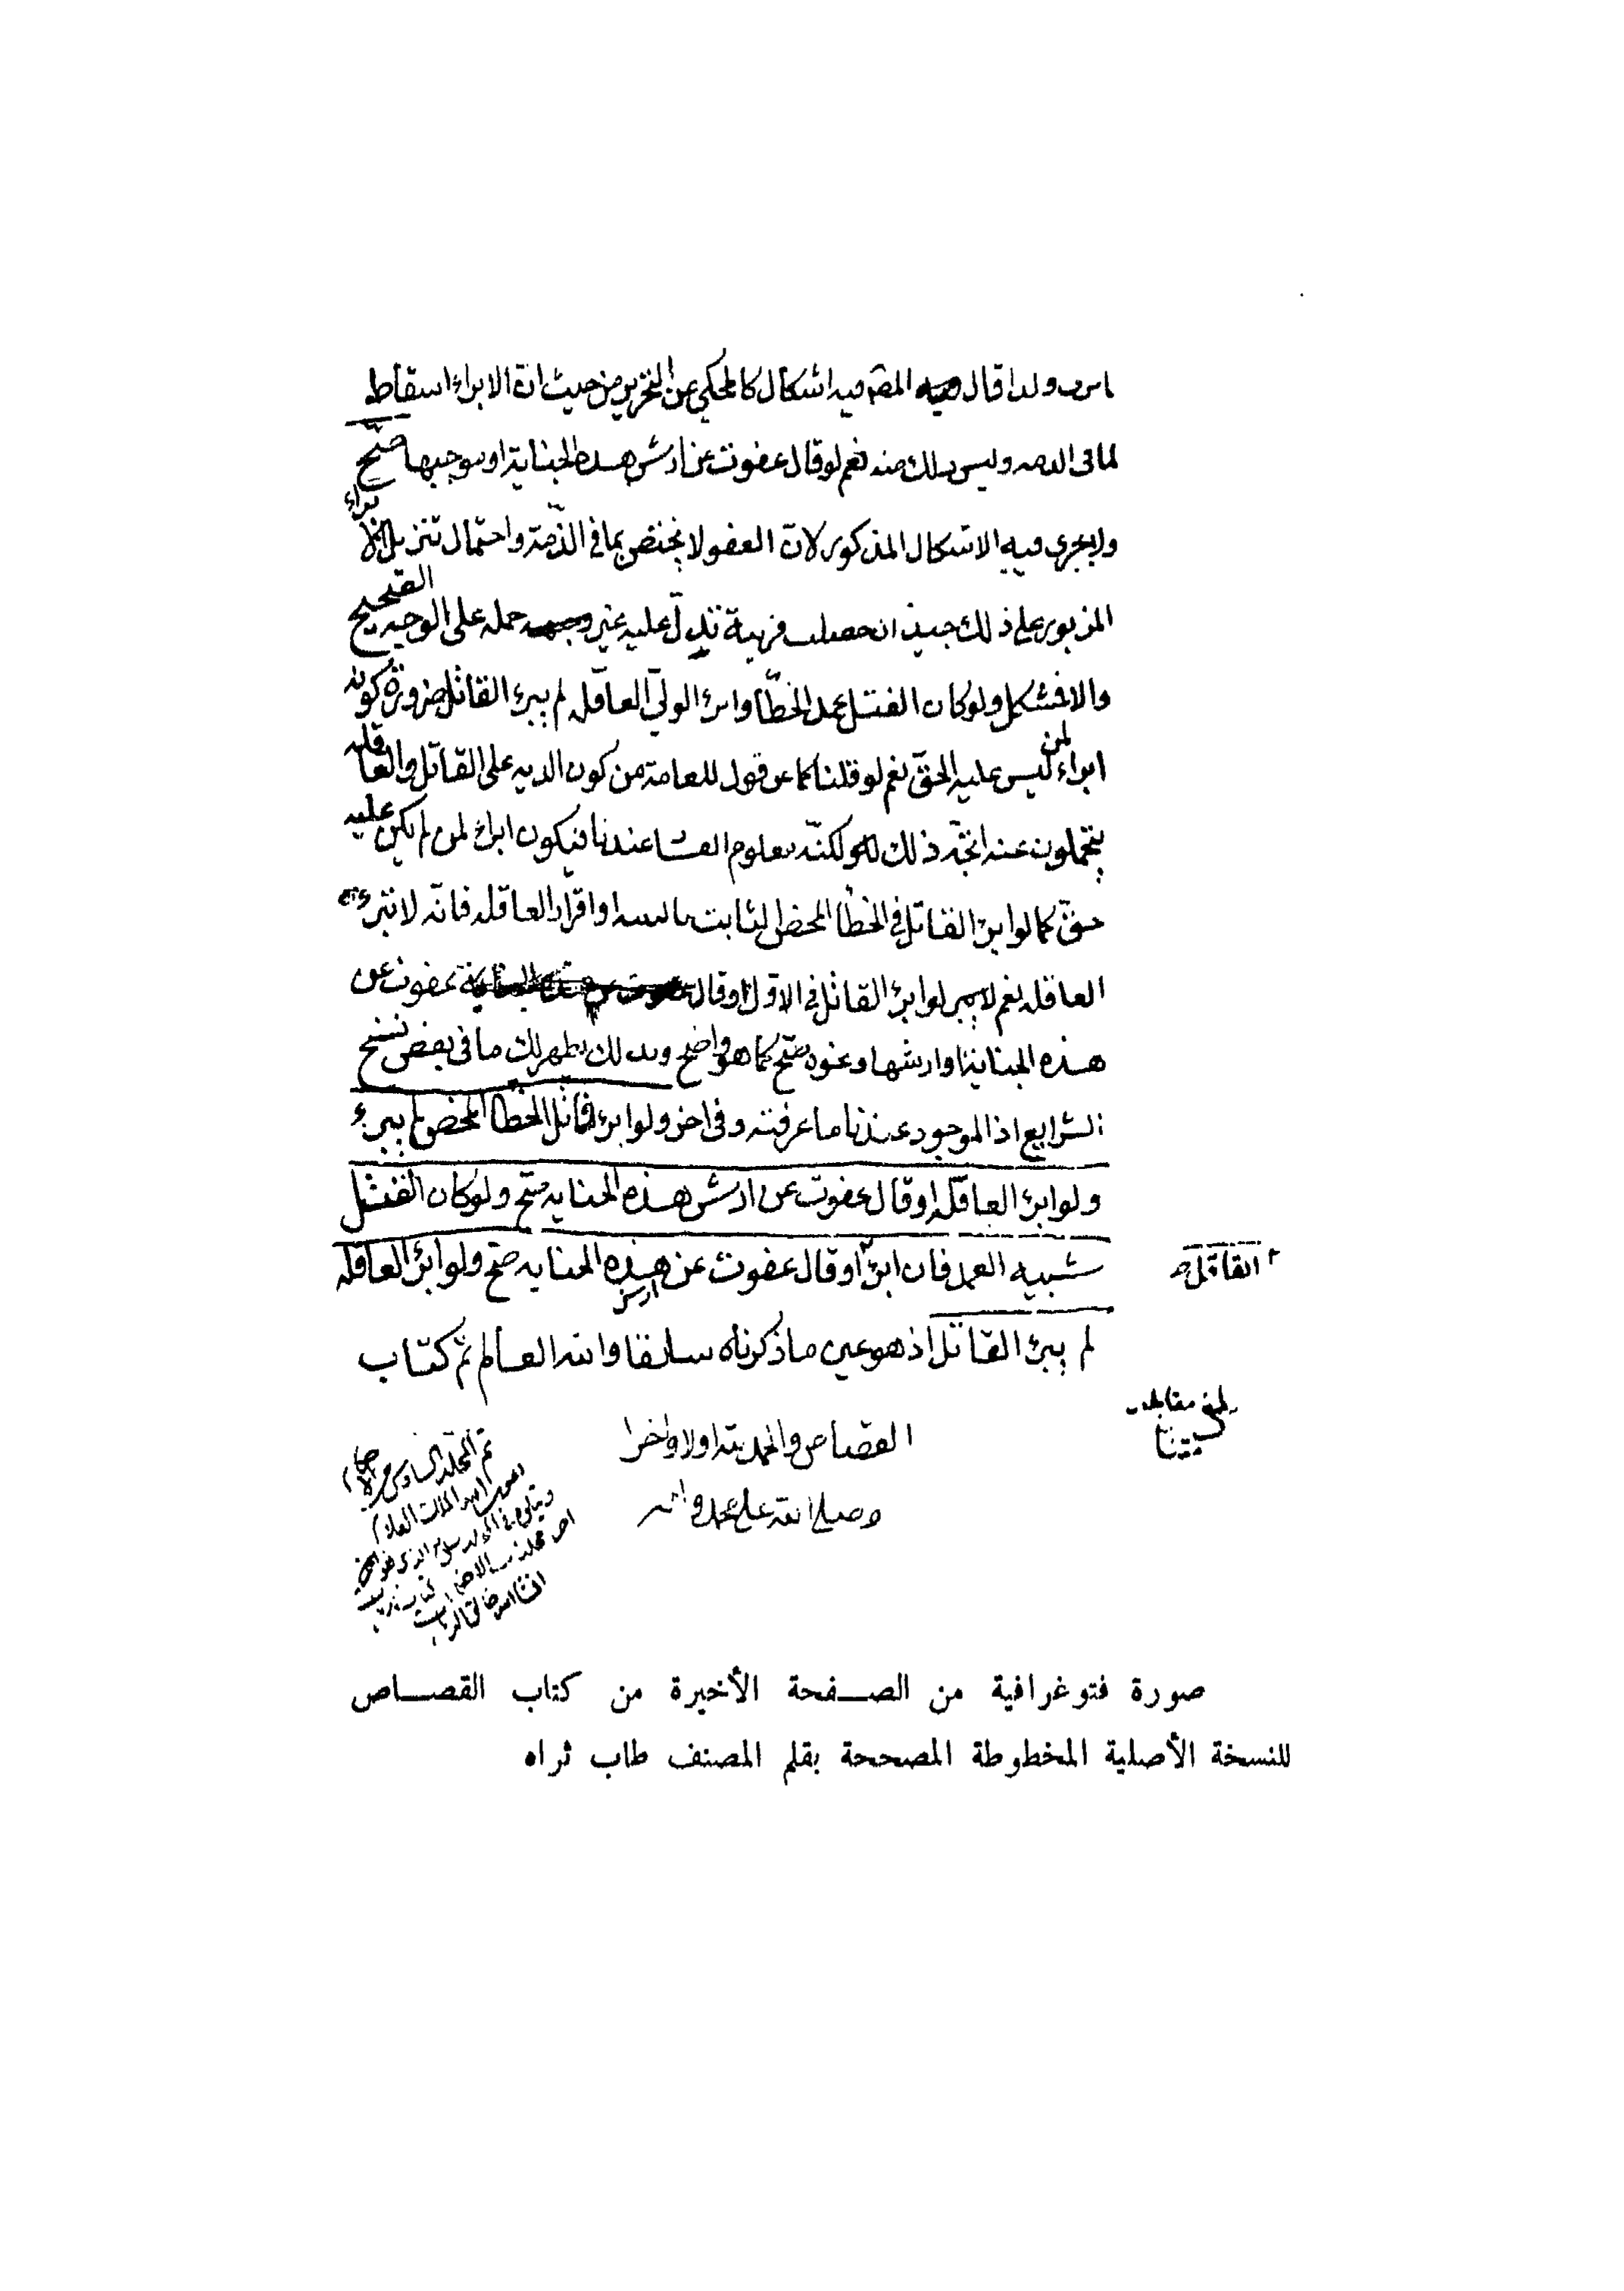 ولذا قال المصنف فيه اشكال كالمحكي عن التحرير من حيث ان الابراء اسقاط
لما في الذمه وليس ذلك منه نعم لو قال عفوت عن ارش هذه الجناية او موجبها صح
ولا يجري فيه الاشكال المذكور لان العفو لا يختص بما في الذمة واحتمال تنزيل الابراء
المزبور على ذلك جيد ان حصلت قرينة تدل عليه غير حمله على الوجه الصحيح
والا فمشكل ولو كان القتل عمد الخطأ وابرء الولي العاقله لم يبرء القاتل ضرورة كونه
ابراء لمن ليس عليه الحق نعم لو قلنا كما عن قول للعامة من كون الديه على القاتل والعاقله
يتحملون عنه اتجه ذلك ولكنه معلوم الفساد عندنا فيكون ابراء لمن لم يكن عليه
حق كما لو ابرء القاتل في الخطأ المحض الثابت بالبينه او اقرار العاقله فانه لا تبرء
العاقله نعم لو ابرء القاتل في الاول او قال عفوت عن
هذه الجناية او ارشها ونحوه صح كما هو واضح وبذلك يظهر لك ما في بعض نسخ
الشرايع اذ الموجود عندنا ما عرفته وفي اخر ولو ابرء قاتل الخطأ المحض لم يبرء
ولو ابرء العاقله او قال عفوت عن ارش هذه الجنايه صح ولو كان القتل
شبيه العمد فان ابرء القاتل او قال عفوت عن ارش هذه الجنايه صح ولو ابرء العاقله
لم يبرء القاتل اذ هو عين ما ذكرناه سابقا والله العالم تم كتاب
القصاص والحمد لله اولا واخرا
وصلى الله على محمد واله
تم المجلد السادس من
صورة فتوغرافية من الصفحة الأخيرة من كتاب القصاص
للنسخة الأصلية المخطوطة المصححة بقلم المصنف طاب ثراه